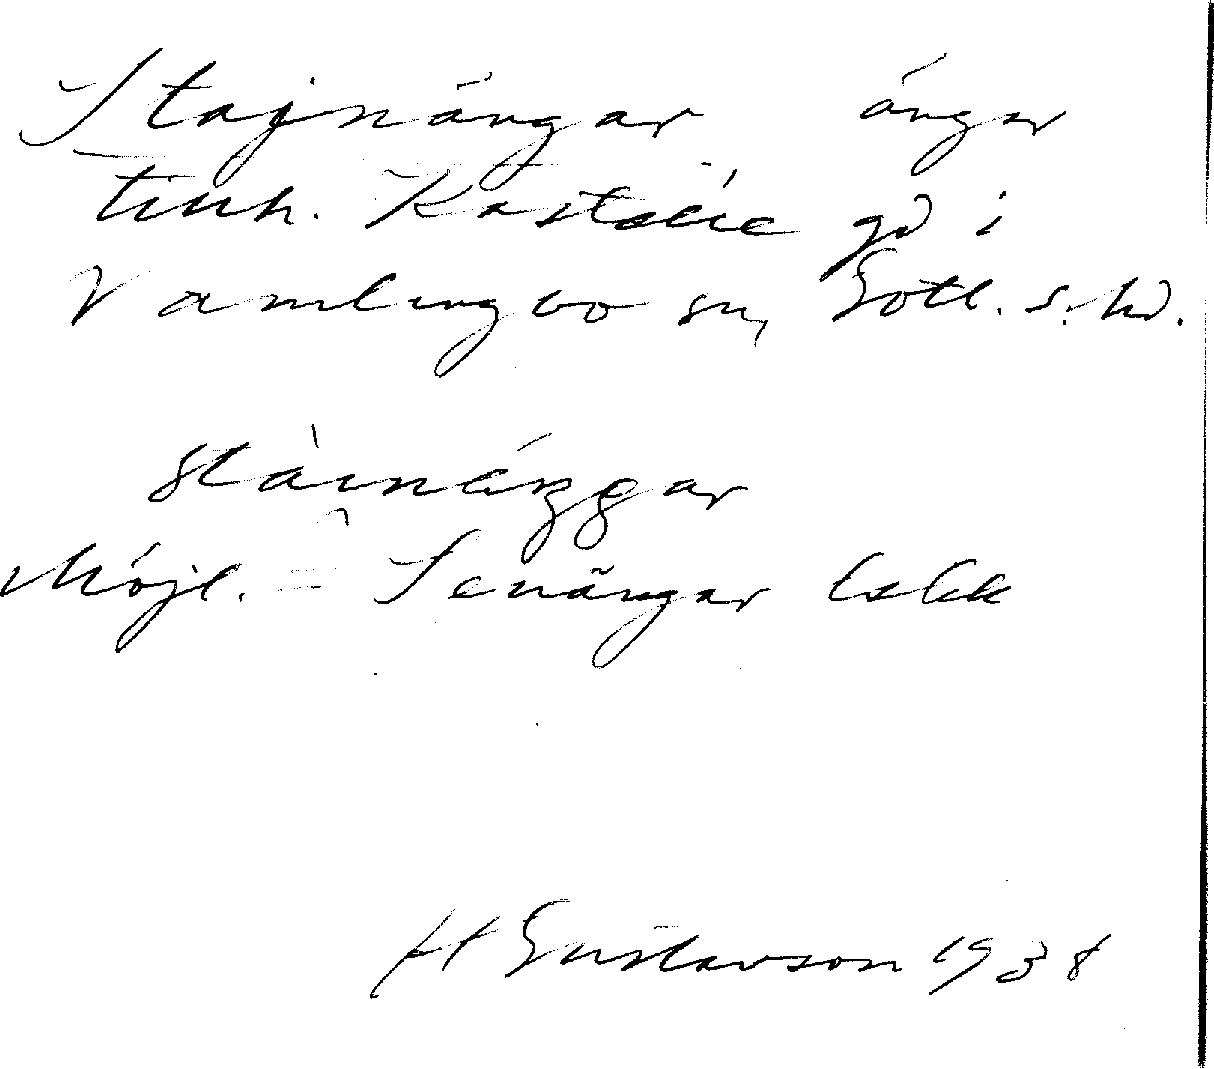 Stajnängar ängar
tillh. Kastläte gd i
Vamlingbo sn, Gotl. s. hd.
stàinéŋgar
Möjl. = Senängar
H Gustavson 1938